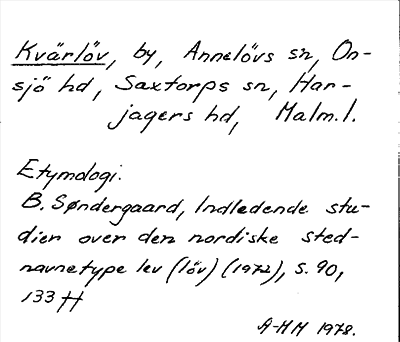 Kvärlöv, by, Annelövs sn, On-
sjö hd, Saxtorps sn, Har-
jagers hd, Malm.l.
Etymologi.
B. Søndergaard, Indledende stu-
dier over den nordiske sted-
navnetype lev (löv) (1972), s. 90,
133 ff
A-MM 1978.